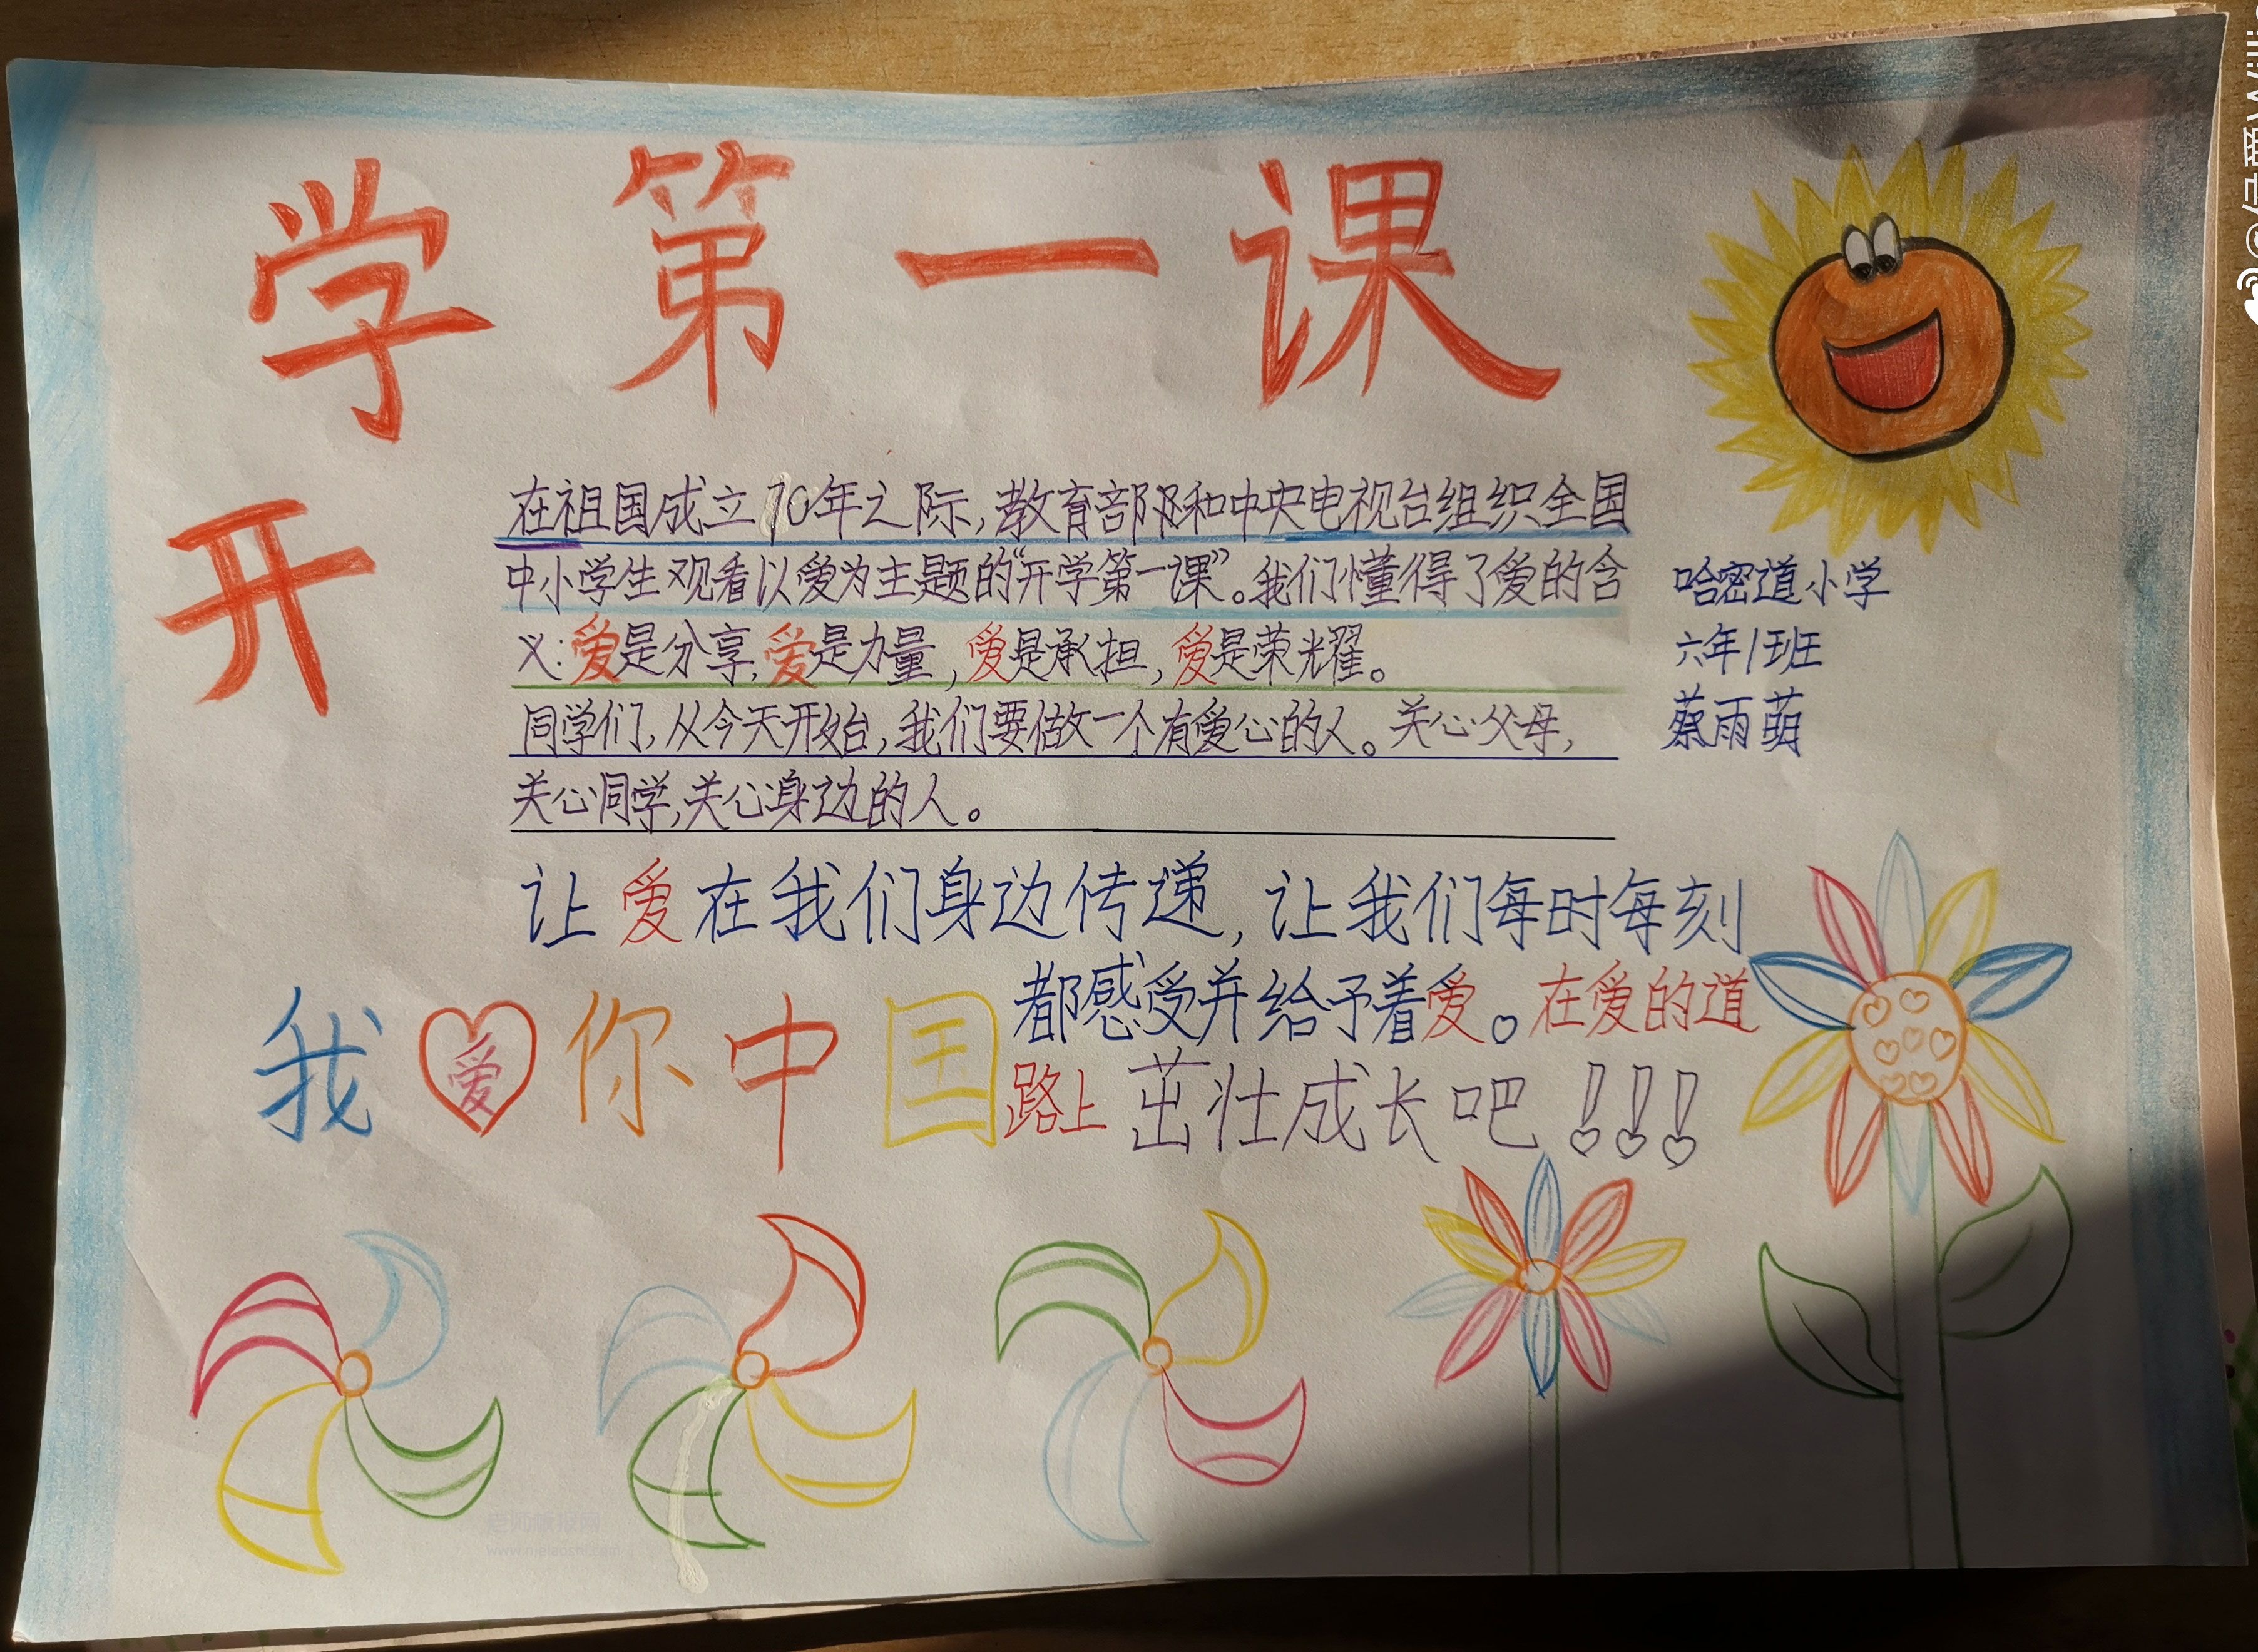 开学第一课
在祖国成立70年之际,教育部和中央电视台组织全国
中小学生观看以爱为主题的“开学第一课”。我们懂得了爱的含
义:爱是分享,爱是力量,爱是承担,爱是荣光耀。
同学们,从今天开始,我们要做一个有爱心的人。关心父母,
关心同学,关心身边的人。
哈密道小学
六年1班
蔡雨萌
让爱在我们身边传递,让我们每时每刻
都感受并给予着爱。在爱的道
路上茁壮成长吧!!!
我爱你中国